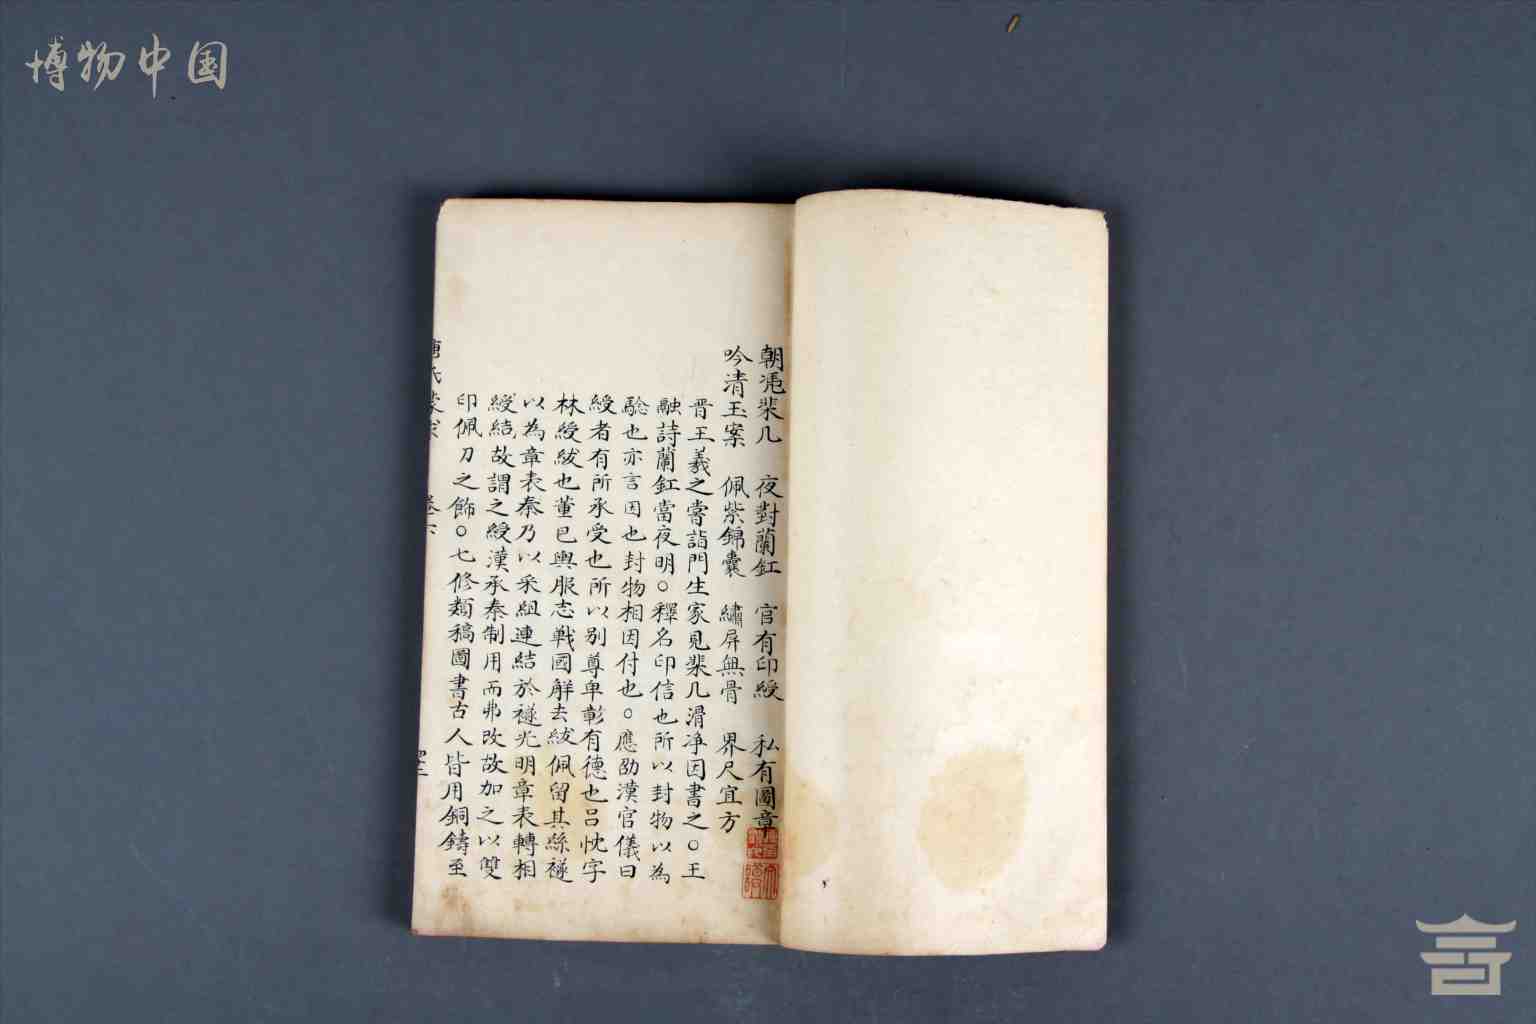 博物中国
朝凴棐几 夜對蘭釭 官有印綬 私有圖章
吟清玉案 佩紫錦囊 繡屏無骨 界尺宜方
晋王羲之嘗詣門生家見棐几滑净因書之○王
融詩蘭釭當夜明○釋名印信也所以封物以為
驗也亦言因也封物相因付也○應劭漢官儀曰
綬者有所承受也所以别尊卑彰有德也吕忱字
林綬紱也董巴輿服志戰國觧去紱佩留其絲襚
以為章表秦乃以采組連結於襚光明章表轉相
綬結故謂之綬漢承秦制用而弗改故加之以雙
印佩刀之飾○七修類稿圖書古人皆用銅鑄至
氏蒙求 卷六